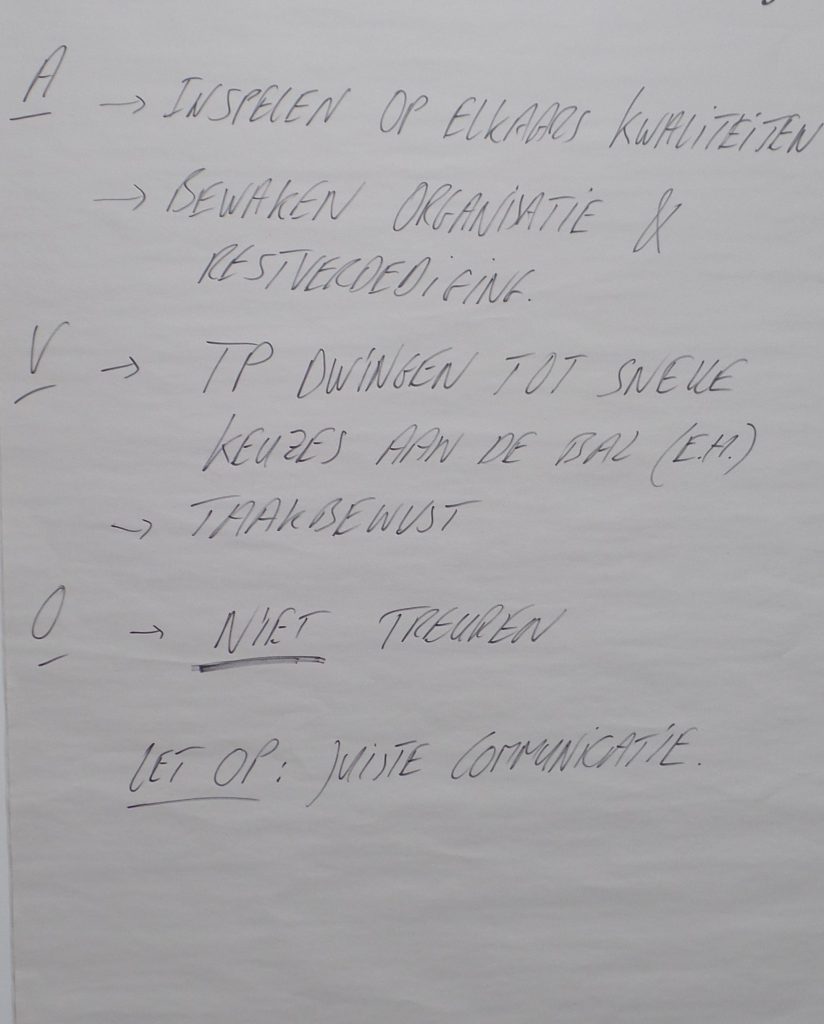 A → INSPELEN OP ELKAARS KWALITEITEN
→ BEWAKEN ORGANISATIE &
RESTVERDEDIGING.
V → TP DWINGEN TOT SNELLE
KEUZES AAN DE BAL (E.H.)
→ TAAKBEWUST
O → NIET TREUREN
LET OP: JUISTE COMMUNICATIE.